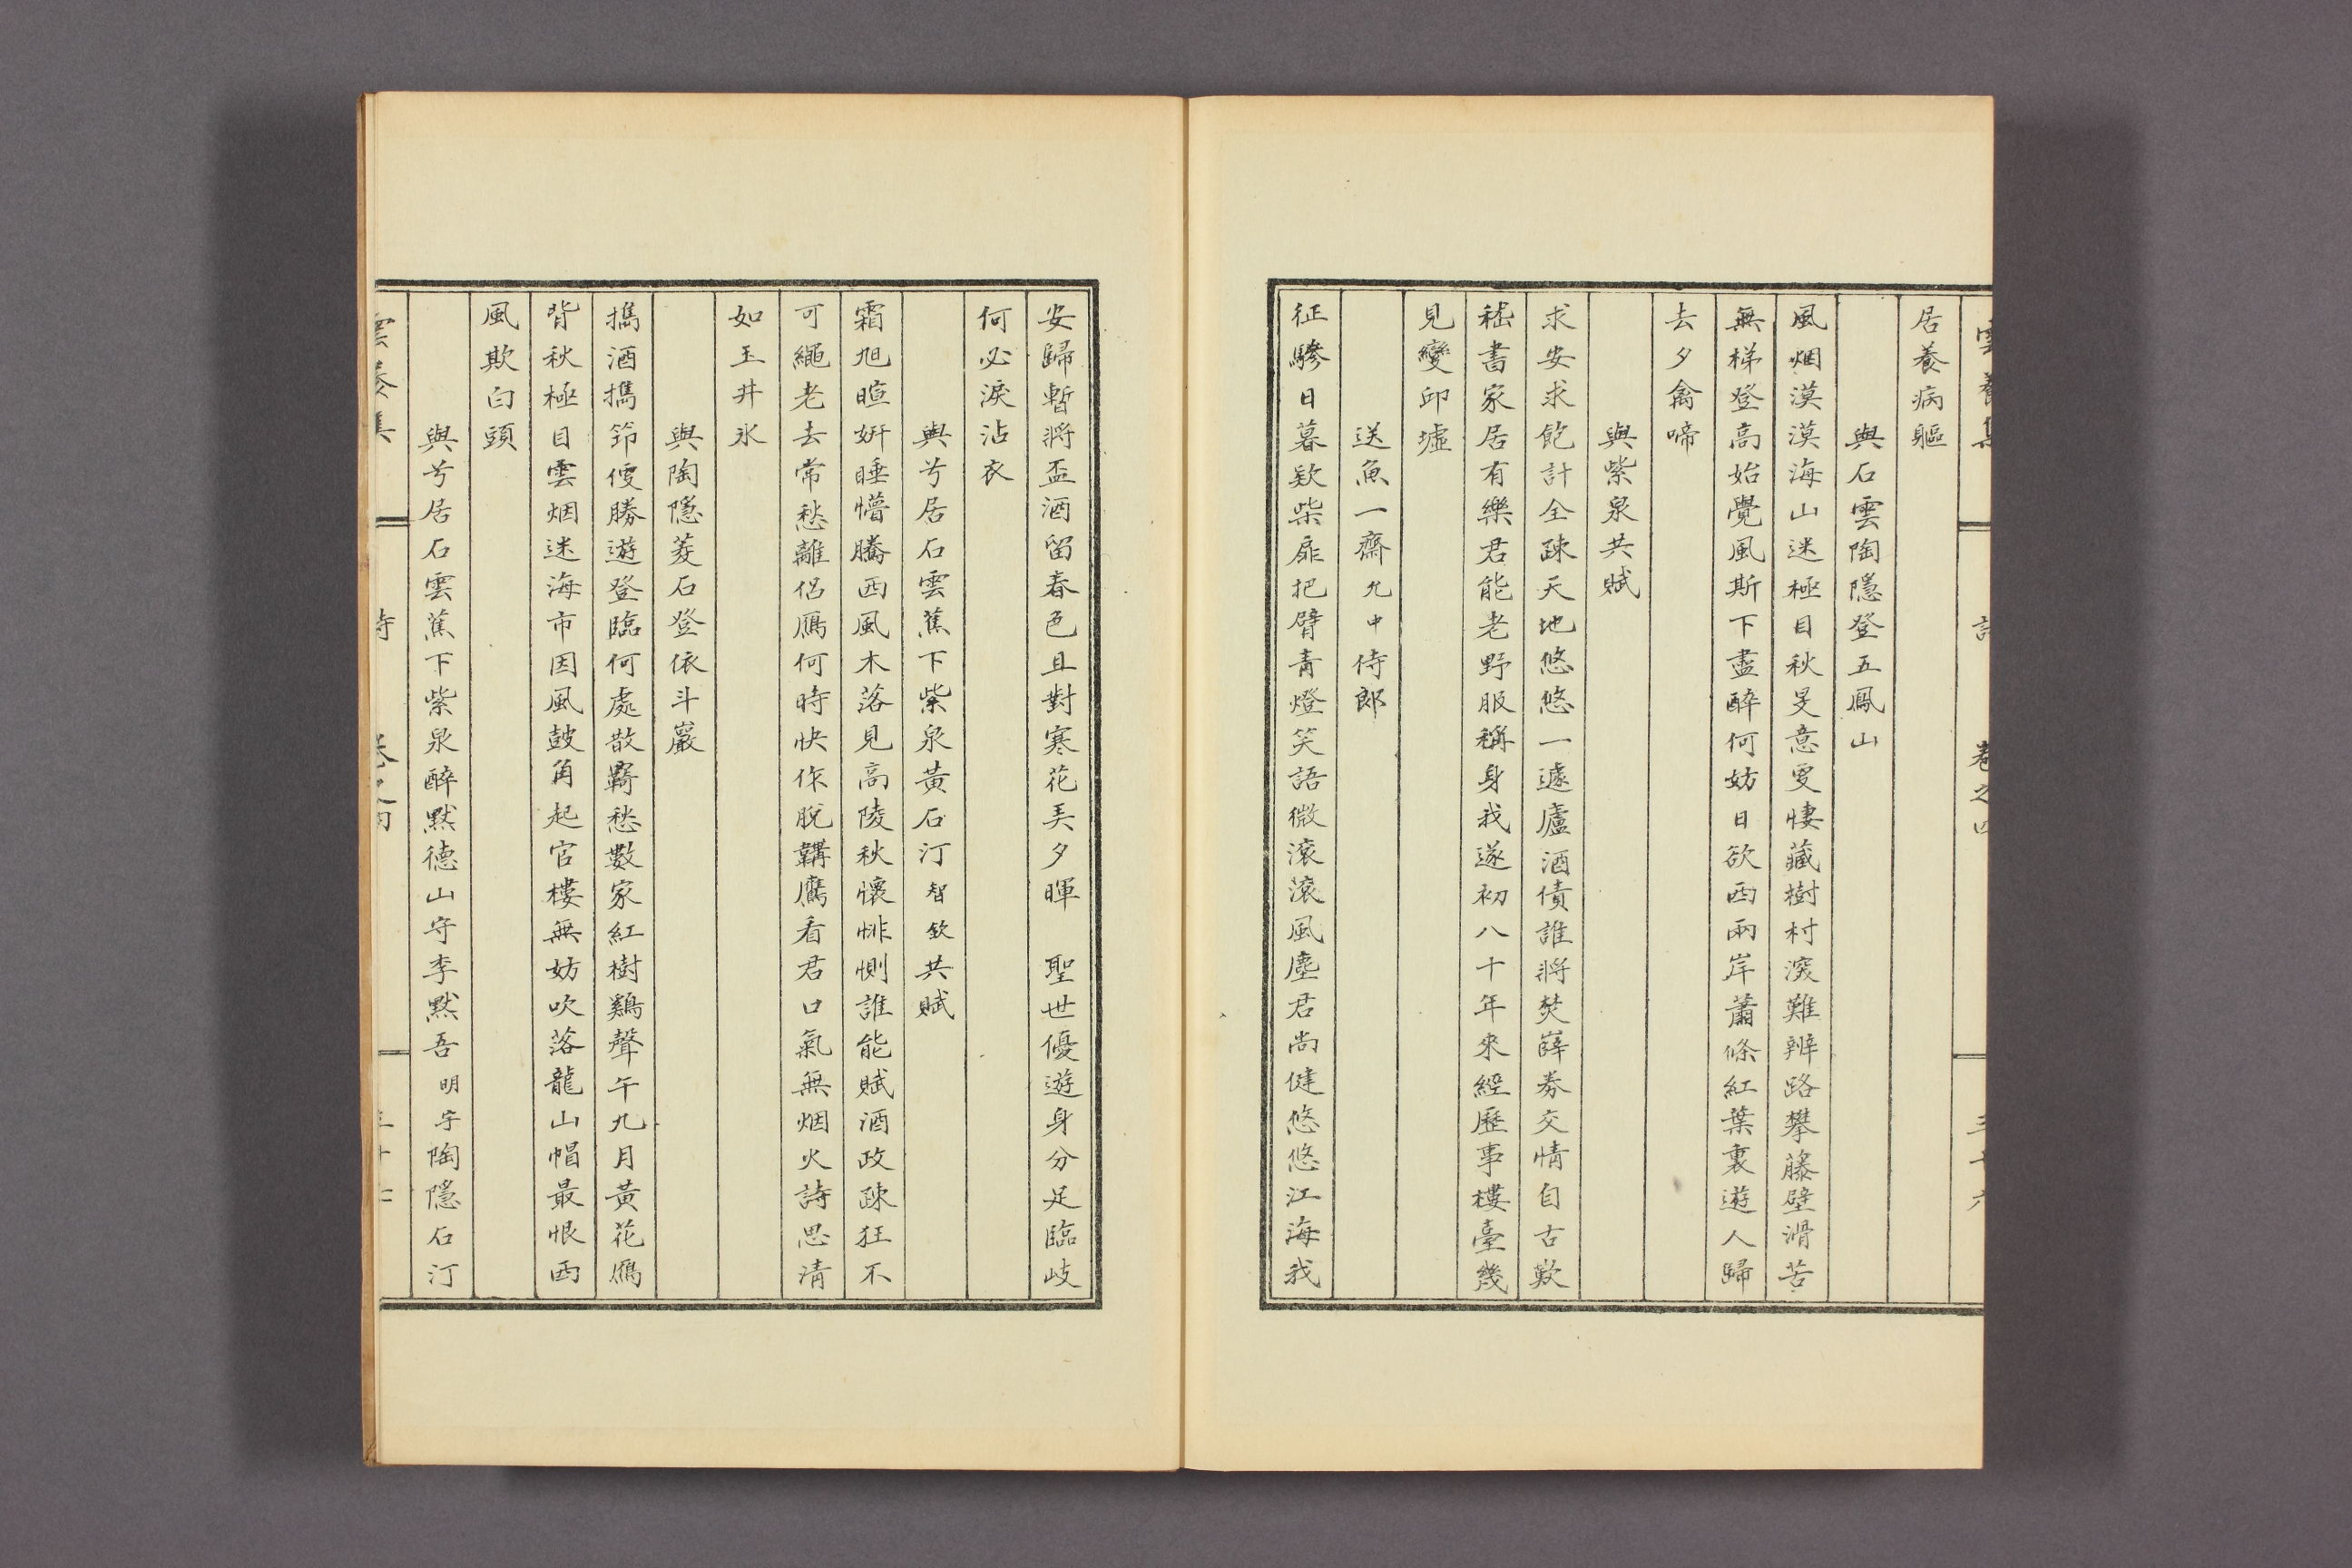 雲養集 詩 卷之四 三十六
居養病軀
與石雲陶隱登五鳳山
風烟漠漠海山迷極目秋旻意更悽藏樹村深難辨路攀藤壁滑苦
無梯登高始覺風斯下盡醉何妨日欲西兩岸蕭條紅葉裏遊人歸
去夕禽啼
與紫泉共賦
求安求飽計全疎天地悠悠一遽廬酒債誰將焚薛券交情自古歎
嵇書家居有樂君能老野服稱身我遂初八十年來經歷事樓臺幾
見變邱墟
送魚一齋允中侍郎
征驂日暮欵柴扉把臂青燈笑語微滾滾風塵君尚健悠悠江海我
安歸暫將盃酒留春色且對寒花弄夕暉 聖世優遊身分足臨岐
何必淚沾衣
與兮居石雲蕉下紫泉黃石汀智欽共賦
霜旭暄姸睡懵騰西風木落見高陵秋懷悱惻誰能賦酒政疎狂不
可繩老去常愁離侶鴈何時快作脫韝鷹看君口氣無烟火詩思淸
如玉井氷
與陶隱菱石登依斗巖
擕酒擕筇便勝遊登臨何處散羇愁數家紅樹鷄聲午九月黃花鴈
背秋極目雲烟迷海市因風鼓角起官樓無妨吹落龍山帽最恨西
風欺白頭
與兮居石雲蕉下紫泉醉默德山守李默吾明宇陶隱石汀
雲養集 詩 卷之四